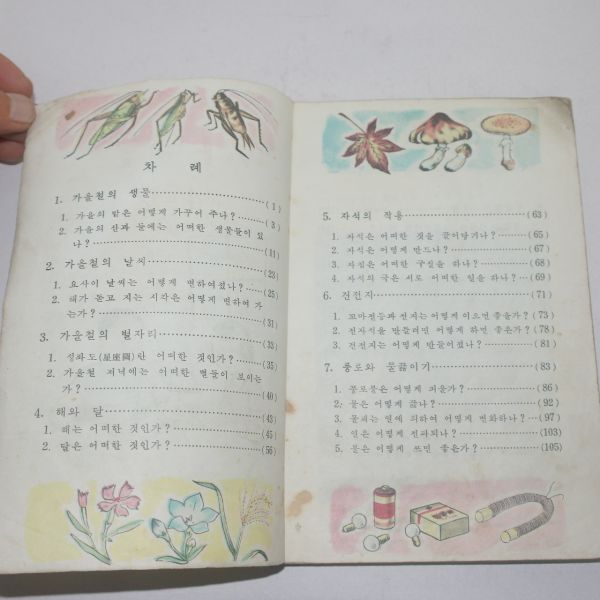 차 례
1. 가을철의 생물 (1)
1. 가을의 밭은 어떻게 가꾸어 주나? (3)
2. 가을의 산과 들에는 어떠한 생물들이 있
나? (11)
2. 가을철의 날씨 (23)
1. 요사이 날씨는 어떻게 변하여졌나? (25)
2. 해가 돋고 지는 시각은 어떻게 변하여 가
는가? (31)
3. 가을철의 별자리 (33)
1. 성좌도(星座圖)란 어떠한 것인가? (35)
2. 가을철 저녁에는 어떠한 별들이 보이는
가? (40)
4. 해와 달 (43)
1. 해는 어떠한 것인가? (45)
2. 달은 어떠한 것인가? (56)
5. 자석의 작용 (63)
1. 자석은 어떠한 것을 끌어당기나? (65)
2. 자석은 어떻게 만드나? (67)
3. 자침은 어떠한 구실을 하나? (68)
4. 자석의 극은 서로 어떠한 일을 하나? (69)
6. 건전지 (71)
1. 꼬마전등과 전지는 어떻게 이으면 좋을가? (73)
2. 전자석을 만들려면 어떻게 하면 좋은가? (78)
3. 건전지는 어떻게 만들어졌나? (81)
7. 풍로와 물끓이기 (83)
1. 풍로불은 어떻게 피울가? (86)
2. 물은 어떻게 끓나? (92)
3. 물체는 열에 의하여 어떻게 변화하나? (97)
4. 열은 어떻게 전파되나? (103)
5. 불은 어떻게 쓰면 좋은가? (105)